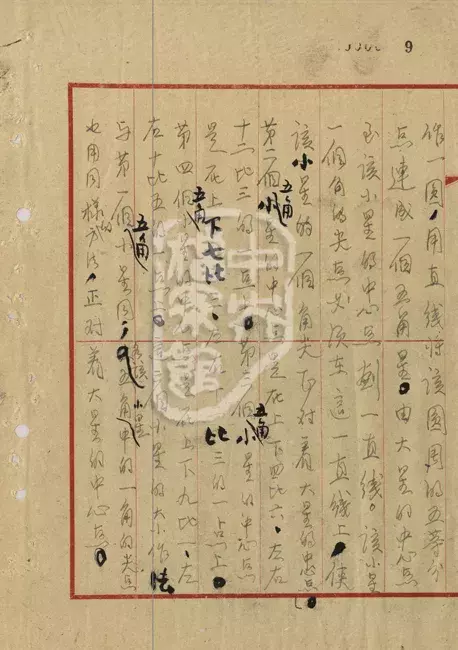 9
作一圓,用直线将該圓周的五等分
点連成一個五角星。由大星的中心点
到該小星的中心点劃一直线。該小星
一個角的尖点必須在這一直线上,使
該小星的一個角尖正对着大星的中心点。
第二個小五角星的中心点是在上下四比六、左右
十二比三的一点上。第三個小五角星的中心点
是在上下七比三、左右十二比三的一点上。
第四個小五角星的中心点是在上下九比一、左
右十比五的一点上。這三個小星的大小作法
与第一個小五角星同,各該小星五角中的一角的尖点
也用同樣的方法,正对着大星的中心点。
中央檔案館